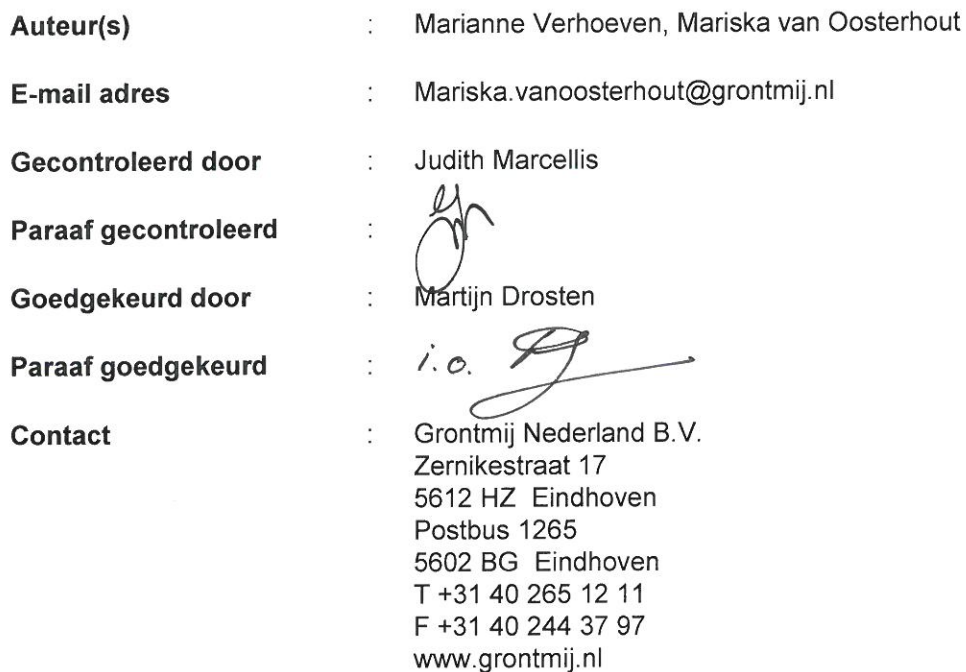 Auteur(s) : Marianne Verhoeven, Mariska van Oosterhout
E-mail adres : Mariska.vanoosterhout@grontmij.nl
Gecontroleerd door : Judith Marcellis
Paraaf gecontroleerd :
Goedgekeurd door : Martijn Drosten
Paraaf goedgekeurd : i.o.
Contact : Grontmij Nederland B.V.
Zernikestraat 17
5612 HZ Eindhoven
Postbus 1265
5602 BG Eindhoven
T +31 40 265 12 11
F +31 40 244 37 97
www.grontmij.nl